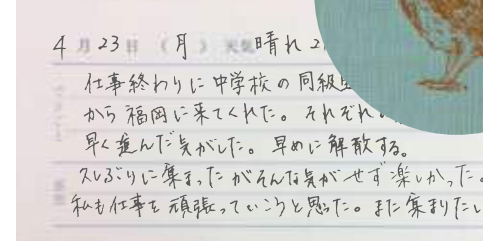 4月23日(月)天気 晴れ 2
仕事終わりに中学校の同級
から福岡に来てくれた。それぞれ
早く進んだ気がした。早めに解散する。
久しぶりに集まったがそんな気がせず楽しかった。
私も仕事を頑張っていこうと思った。また集まりたい